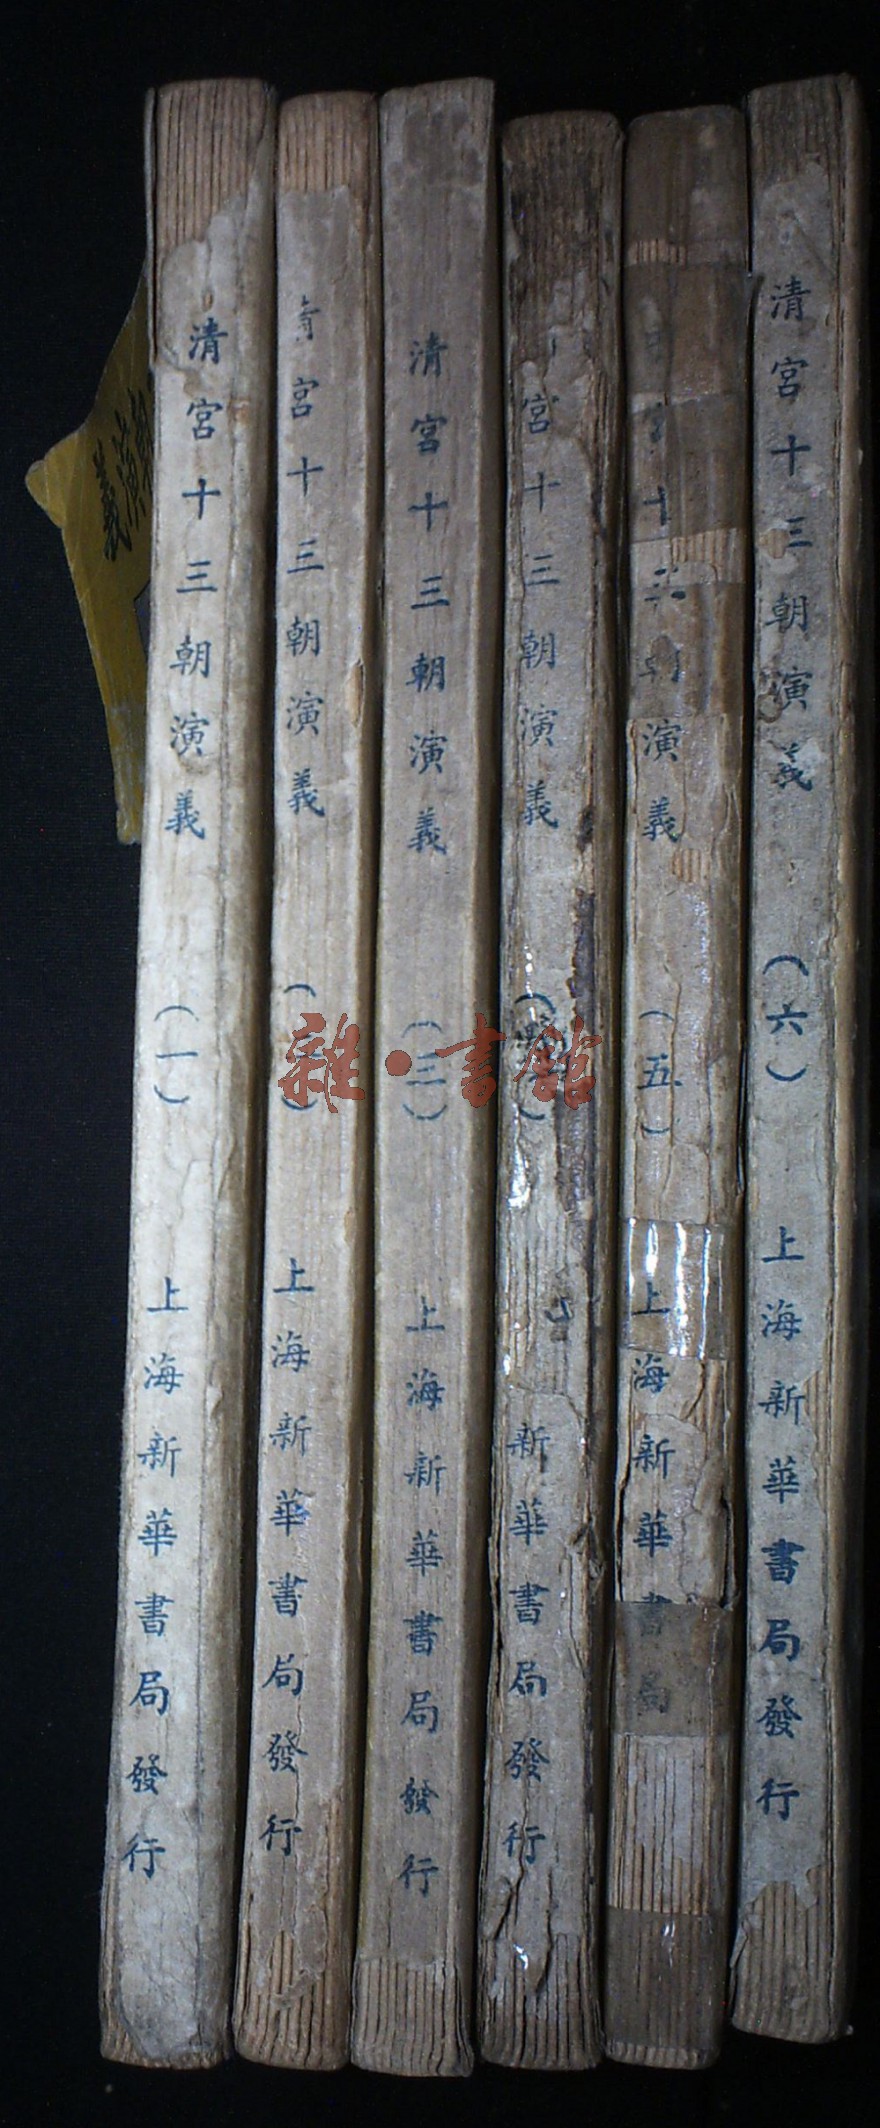 清宮十三朝演義（一）上海新華書局發行
宮十三朝演義（ ）上海新華書局發行
清宮十三朝演義（三）上海新華書局發行
宮十三朝演義（ ）新華書局發行
演義（五）上海新華書局
清宮十三朝演義（六）上海新華書局發行
演義
雜·書館